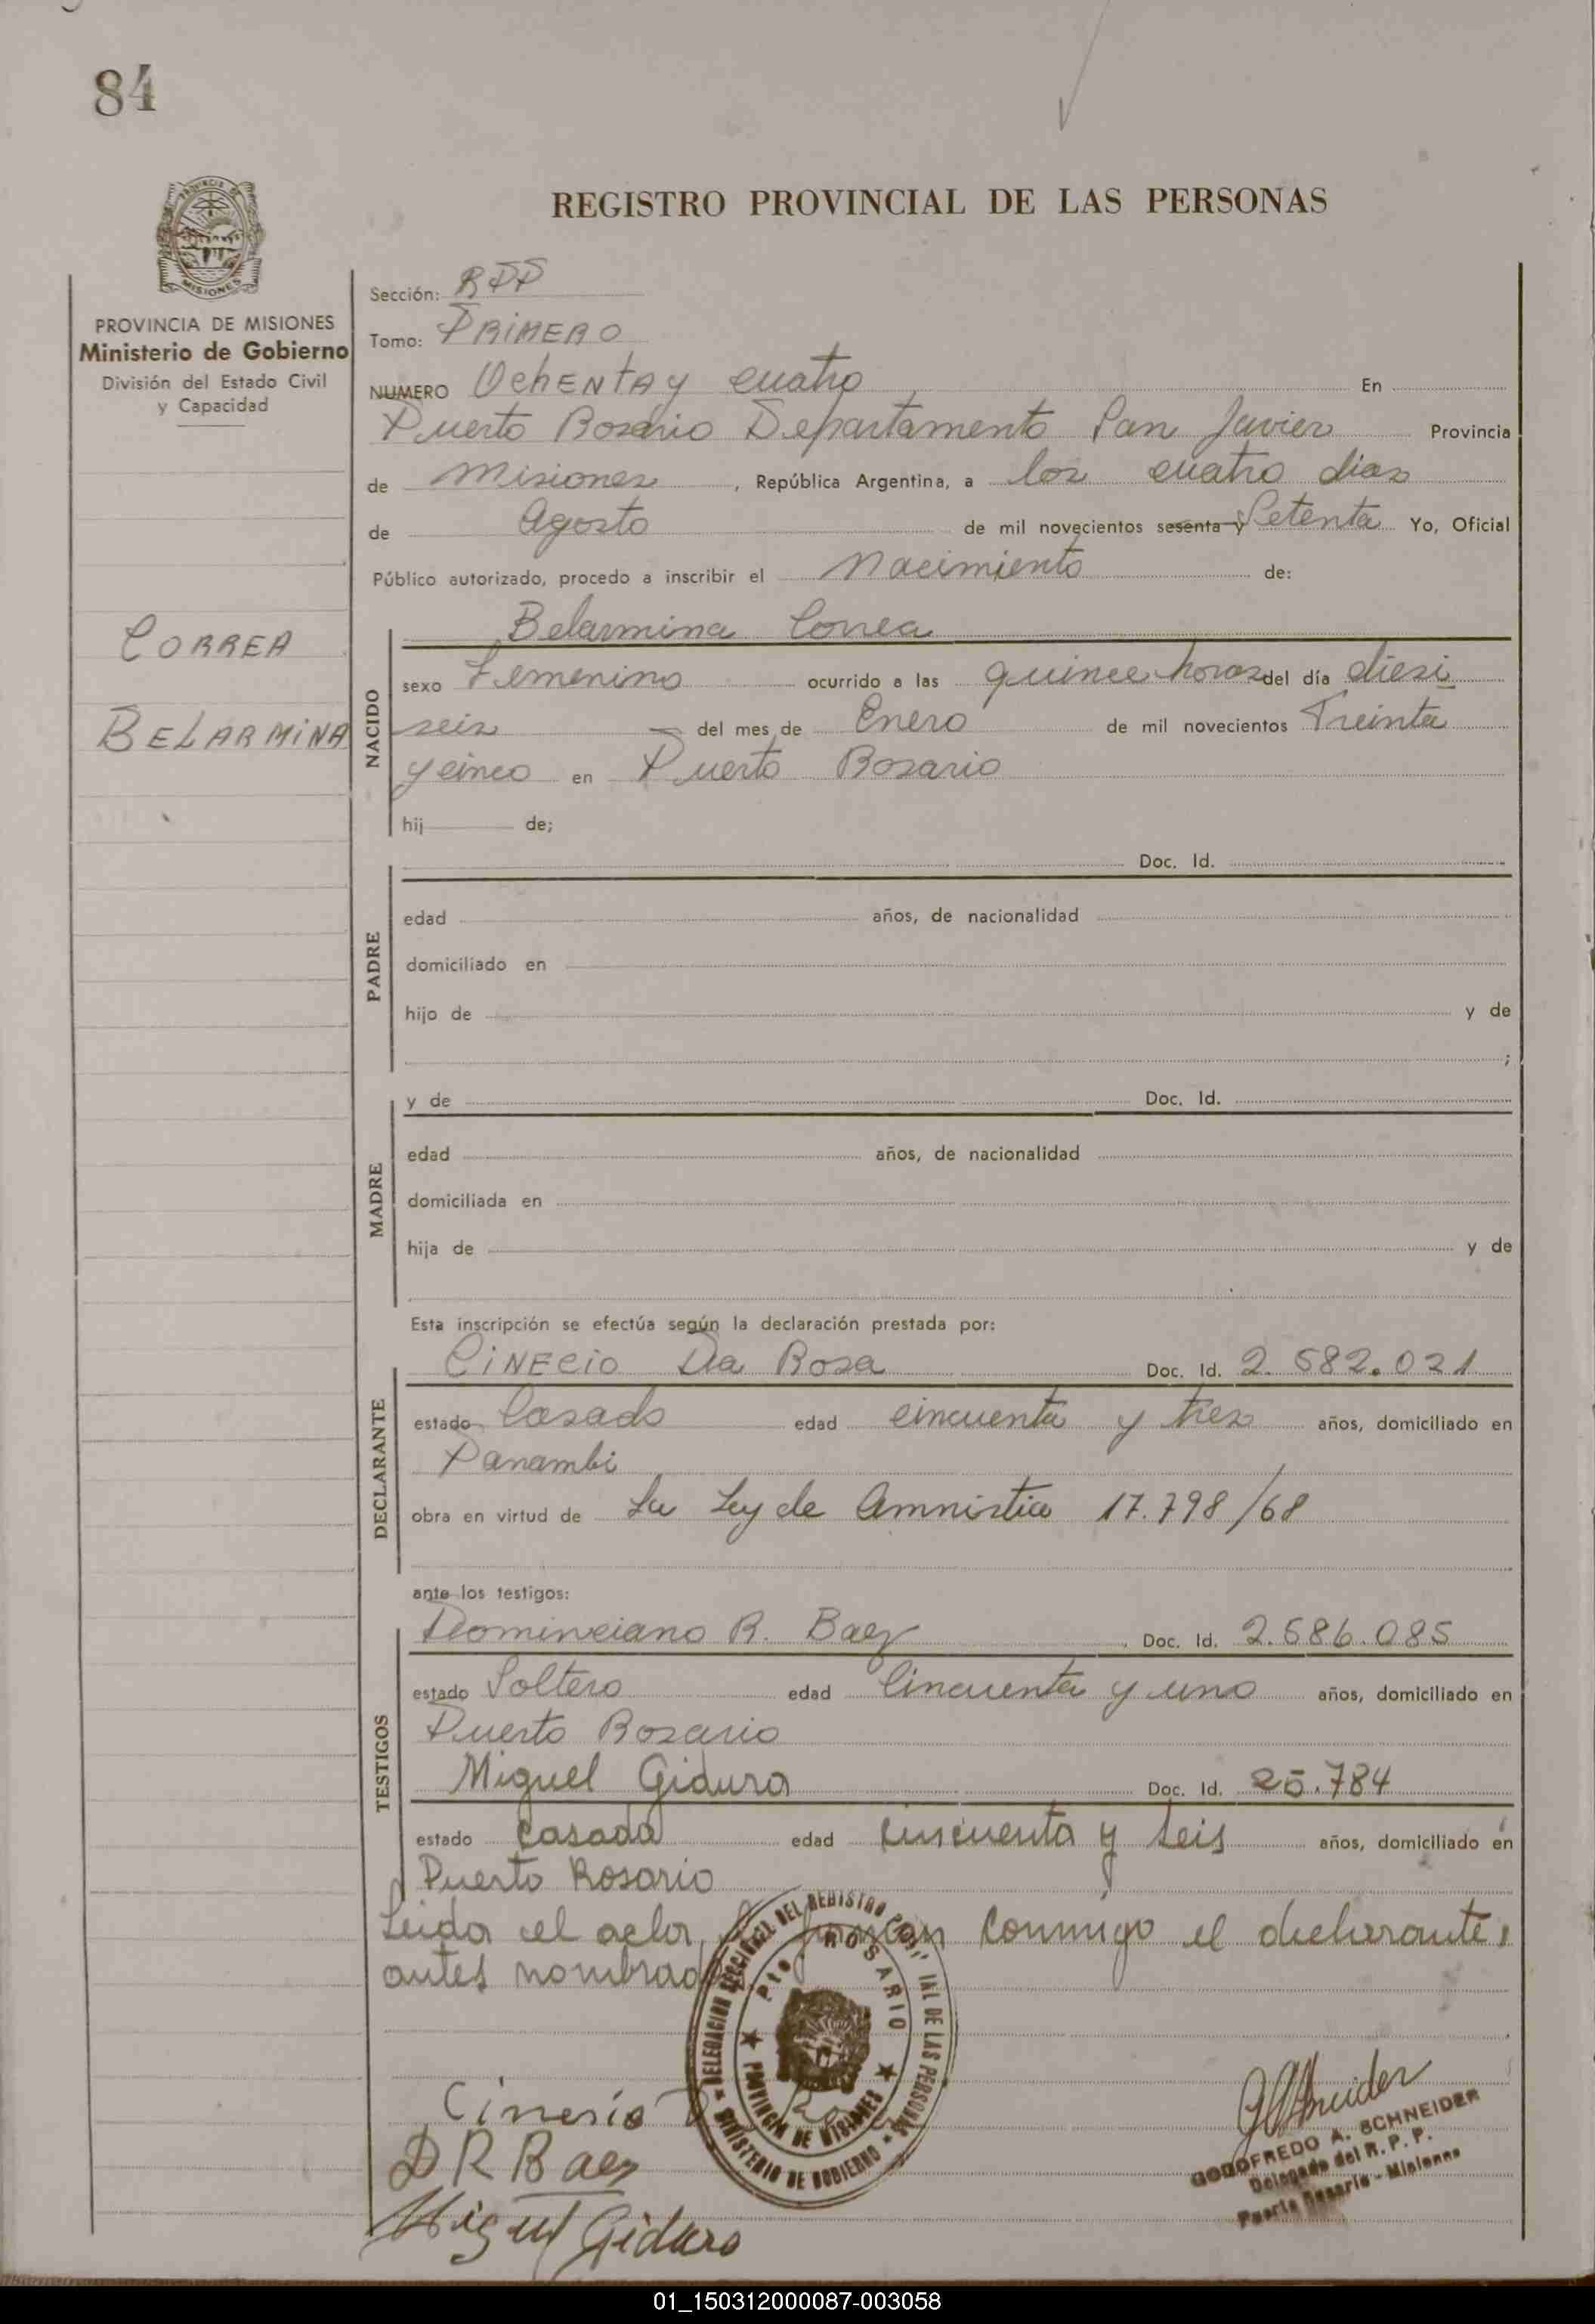 84
REGISTRO PROVINCIAL DE LAS PERSONAS
PROVINCIA DE
MISIONES
PROVINCIA DE MISIONES
Ministerio de Gobierno
División del Estado Civil
y Capacidad
CORREA
BELARMINA
Sección: RPP
Tomo: PRIMERO
NUMERO OchENTA y cuatro En
Puerto Rosario Departamento San Javier Provincia
de Misiones , República Argentina, a los cuatro dias
de Agosto de mil novecientos sesenta y Setenta Yo, Oficial
Público autorizado, procedo a inscribir el Nacimiento de:
NACIDO
Belarmina Correa
sexo Femenino ocurrido a las quince horas del día diesi
seis del mes de Enero de mil novecientos Treinta
y cinco en Puerto Rosario
hij de;
PADRE
Doc. Id.
edad años, de nacionalidad
domiciliado en
hijo de y de
;
MADRE
y de Doc. Id.
edad años, de nacionalidad
domiciliada en
hija de y de
Esta inscripción se efectúa según la declaración prestada por:
DECLARANTE
CiNECio Da Rosa Doc. Id. 2.582.021
estado Casado edad cincuenta y tres años, domiciliado en
Panambi
obra en virtud de La Ley de Amnistia 17.798/68
ante los testigos:
TESTIGOS
Dominciano R. Baez Doc. Id. 2.586.085
estado Soltero edad Cincuenta y uno años, domiciliado en
Puerto Rosario
Miguel Gidura Doc. Id. 25.784
estado Casado edad Cincuenta y seis años, domiciliado en
Puerto Rosario
Leida el acta, firman conmigo el declarante,
antes nombrado
DELEGACION SECCIONAL DEL REGISTRO PROVINCIAL DE LAS PERSONAS
Pto ROSARIO
PROVINCIA DE MISIONES
MINISTERIO DE GOBIERNO
Cinesio D Rosa
D R Baez
Miguel Giduro
GASchneider
GODOFREDO A. SCHNEIDER
Delegado del R. P. P.
Puerto Rosario - Misiones
01_150312000087-003058